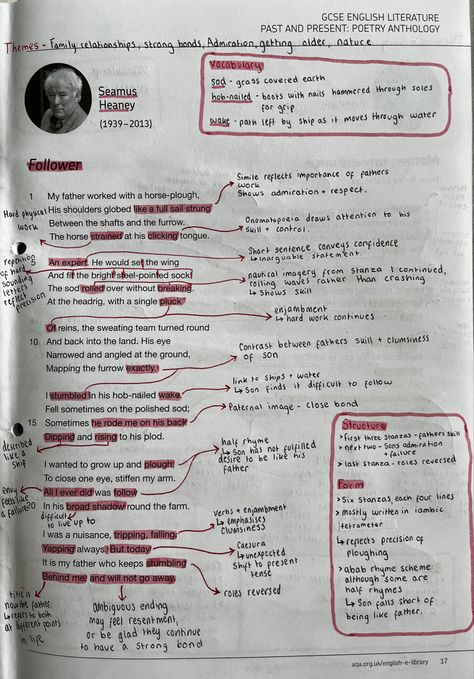 GCSE ENGLISH LITERATURE
PAST AND PRESENT: POETRY ANTHOLOGY
Themes - Family relationships, strong bonds, Admiration, getting older, nature
Seamus
Heaney
(1939–2013)
Vocabulary
sod - grass covered earth
hob-nailed - boots with nails hammered through soles
for grip
wake - path left by ship as it moves through water
Follower
1 My father worked with a horse-plough,
His shoulders globed like a full sail strung
Between the shafts and the furrow.
The horse strained at his clicking tongue.
5 An expert. He would set the wing
And fit the bright steel-pointed sock.
The sod rolled over without breaking.
At the headrig, with a single pluck
Of reins, the sweating team turned round
10 And back into the land. His eye
Narrowed and angled at the ground,
Mapping the furrow exactly.
I stumbled in his hob-nailed wake,
Fell sometimes on the polished sod;
15 Sometimes he rode me on his back
Dipping and rising to his plod.
I wanted to grow up and plough,
To close one eye, stiffen my arm.
All I ever did was follow
20 In his broad shadow round the farm.
I was a nuisance, tripping, falling,
Yapping always. But today
It is my father who keeps stumbling
Behind me, and will not go away.
Hard physical
work
repetition
of hard
sounding
letters
reflect
precision
described
like a
ship
envy
feels like
a failure
difficult
to live up to
title is
now the father
↳ refers to both
at different points
in life
Simile reflects importance of fathers
work
Shows admiration + respect.
Onomatopoeia draws attention to his
skill + control.
Short sentence conveys confidence
↳ inarguable statement.
nautical imagery from stanza 1 continued,
rolling waves rather than crashing
↳ Shows skill
enjambment
↳ hard work continues
Contrast between fathers skill + clumsiness
of son
link to ships + water
↳ Son finds it difficult to follow
Paternal image - close bond
half rhyme
↳ Son has not fulfilled
desire to be like his
father
Verbs + enjambment
↳ emphasises
clumsiness
Caesura
↳ unexpected
Shift to present
tense
roles reversed
Ambiguous ending
may feel resentment,
or be glad they continue
to have a strong bond
Structure
> first three stanzas - fathers skill
> next two - sons admiration
+ failure
> last stanza - roles reversed
Form
> Six stanzas, each four lines
> mostly written in iambic
tetrameter
↳ reflects precision of
ploughing
> abab rhyme scheme
although some are
half rhymes
↳ Son falls short of
being like father.
aqa.org.uk/english-e-library 17